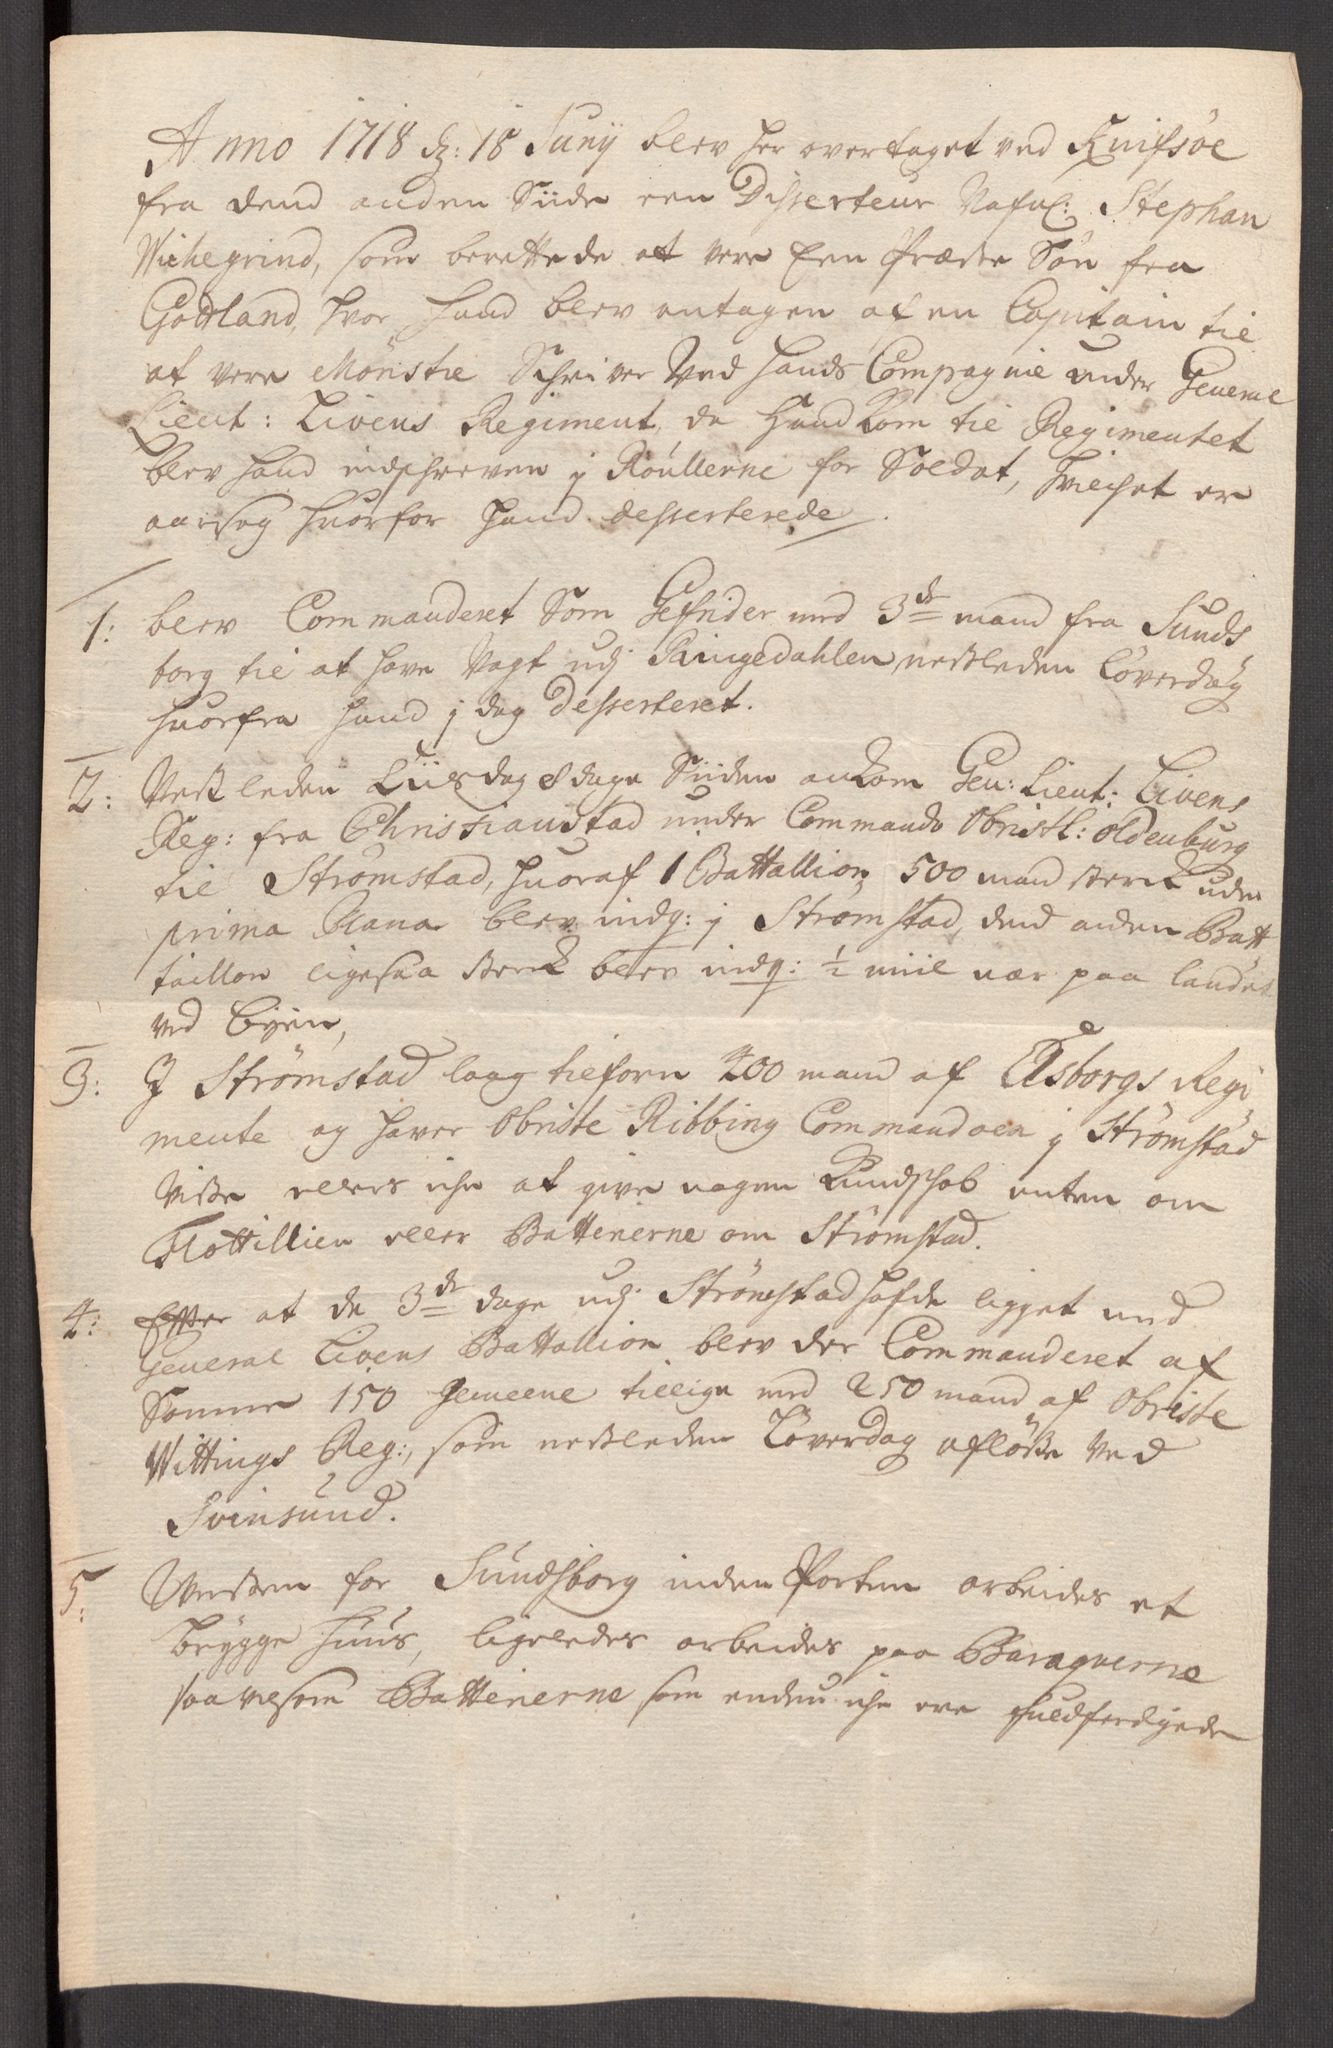 Anno 1718 d: 18 Junij blev her overtaget ved Knifsöe
fra dend anden Siide een Disserteur Nafnl: Stephan
Wichegrind, som berettede at vere Een Præste Sön fra
Gottland, hvor hand blev antagen af en Capitain til
at vere Mönstre Schriver Ved hands Compagnie under General
Lieut: Livens Regiment, da Hand kom til Regimentet
blev hand indschreven j Röullerne for Soldat, hvilchet er
aarsag huorfor hand desserterede.
1: blev Commanderet Som Gefrider med 3de mand fra Sunds
borg til at have Vagt udj Ringedahlen nestleden Löverdag
huorfra hand j dag desserteret.
2: Nestleden Tiisdag 8 dage Siiden ankom Gen: Lieut: Livens
Reg: fra Christianstad under Commando Obristl: Oldenburg
til Strömstad, huoraf 1 Battallion 500 mand sterck uden
prima Plana blev indq: j Strömstad, dend anden Batt
taillon ligesaa sterck blev indq: ½ miil nær paa landet
ved byen,
3: J Strömstad laag tilforn 400 mand af Elfsborgs Regi
mente og haver Obriste Ribbing Commandoen j Strömstad
Viste ellers iche at give nogen Kundschab enten om
Flottillien eller Batterierne om Strömstad.
4: Efter at de 3de dage udj Strömstad hafde ligget med
General Livens Battallion blev der Commanderet af
Samme 150 Gemeene tillige med 250 mand af Obriste
Wittings Reg:, som nestleden Löverdag aflöste ved
Svinsund.
5: Westen for Sundsborg inden Porten arbeides et
brygge huus, ligeledes arbeides paa Baraquerne
saavelsom Batterierne som endnu iche ere fuldferdigede